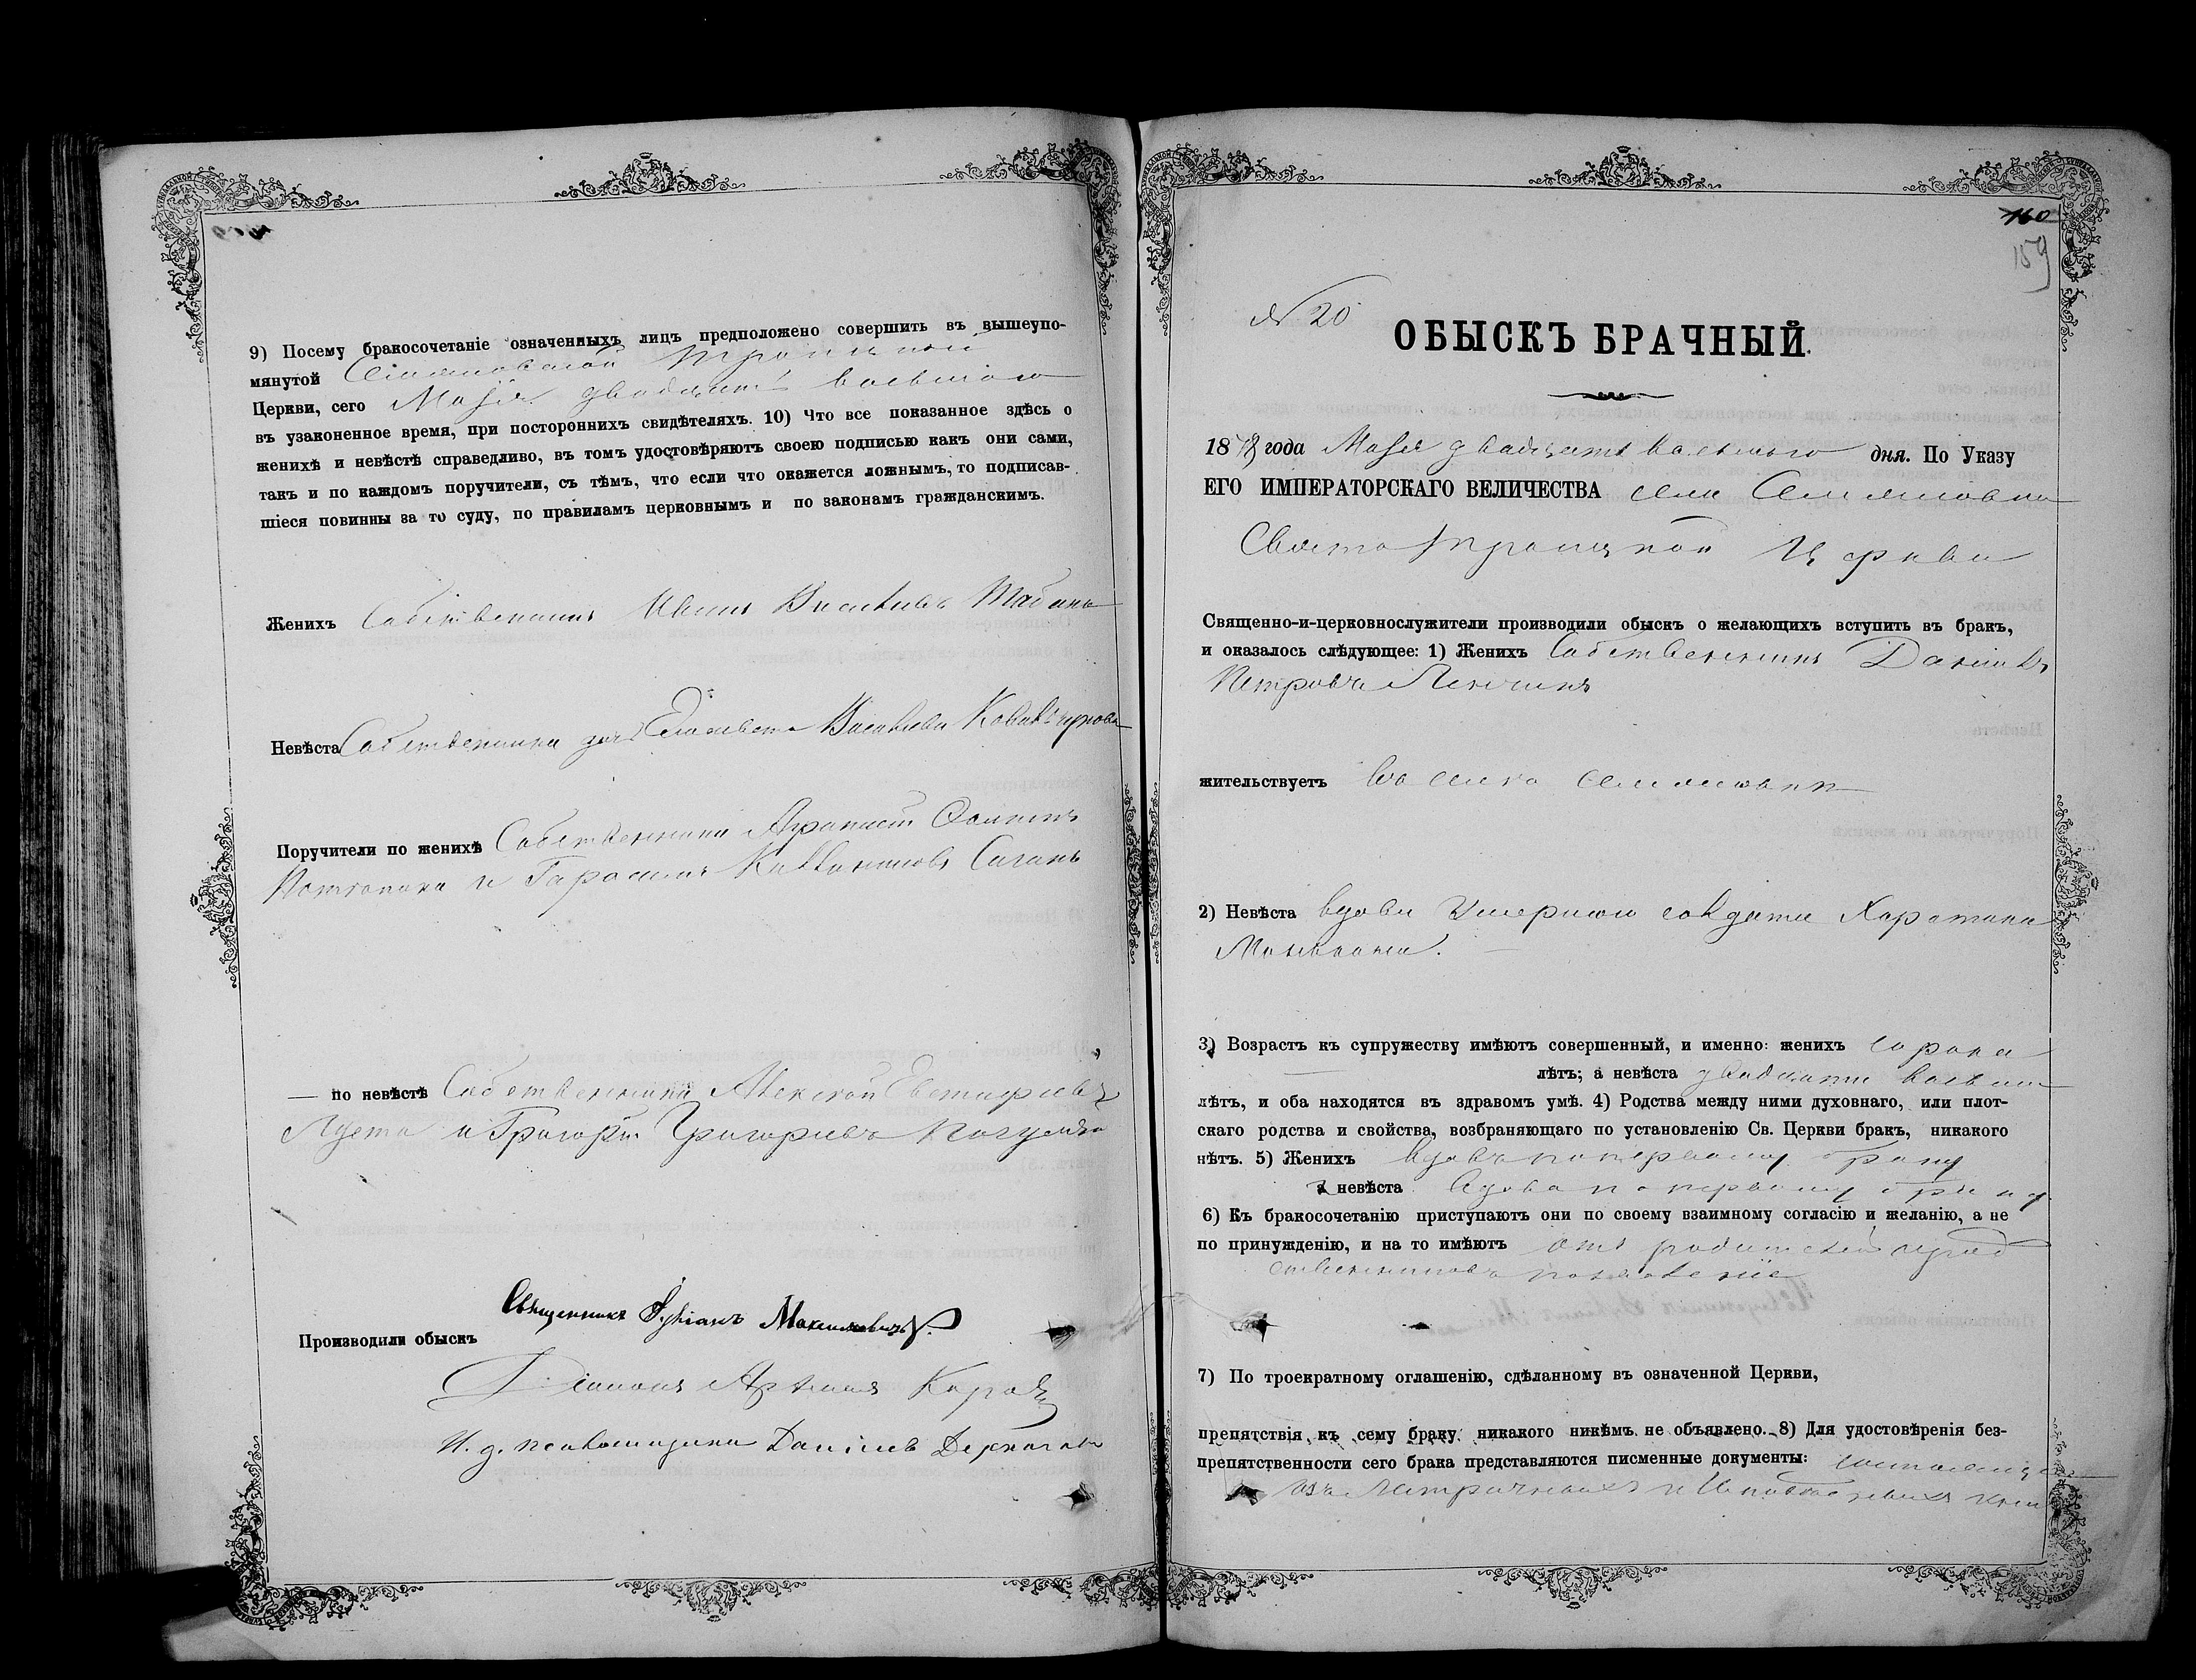 9) Посему бракосочетаніе означенныхъ лицъ предположено совершить въ вышеупо-
мянутой Семяновской Троицкой
Церкви, сего Маія двадцать восьмого
въ узаконенное время, при постороннихъ свидѣтеляхъ. 10) Что все показанное здѣсь о
женихѣ и невѣстѣ справедливо, въ томъ удостовѣряютъ своею подписью какъ они сами,
такъ и по каждомъ поручители, съ тѣмъ, что если что окажется ложнымъ, то подписав-
шіеся повинны за то суду, по правиламъ церковнымъ и по законамъ гражданскимъ.
Женихъ Собственникъ Иванъ Васильевъ
Невѣста Собственника дочь Елисавета Васильева
Поручители по женихѣ Собственники
и Гарасимъ Саганъ
— по невѣстѣ Собственники Алексѣй Евстафіевъ
Лу́ста и Григорій Григорьевъ
Священникъ Іуліанъ Максимовичъ.
Производили обыскъ
Діаконъ
И. д. псаломщика Даніилъ
160
159
№ 20
ОБЫСКЪ БРАЧНЫЙ.
1878 года Маія двадцать восьмого дня. По Указу
ЕГО ИМПЕРАТОРСКАГО ВЕЛИЧЕСТВА села Семяновки
Свято Троицкой Церкви
Священно-и-церковнослужители производили обыскъ о желающихъ вступить въ бракъ,
и оказалось слѣдующее: 1) Женихъ Собственникъ Даніилъ
Петровъ
жительствуетъ въ селѣ Семяновкѣ
2) Невѣста вдова умершаго солдата Харитина
3) Возрастъ къ супружеству имѣютъ совершенный, и именно: женихъ сорока
лѣтъ; а невѣста двадцати восьми
лѣтъ, и оба находятся въ здравомъ умѣ. 4) Родства между ними духовнаго, или плот-
скаго родства и свойства, возбраняющаго по установленію Св. Церкви бракъ, никакого
нѣтъ. 5) Женихъ вдовъ по первому браку
а невѣста вдова по первому браку
6) Къ бракосочетанію приступаютъ они по своему взаимному согласію и желанію, а не
по принужденію, и на то имѣютъ отъ родителей и род
ственниковъ позволеніе
7) По троекратному оглашенію, сдѣланному въ означенной Церкви,
препятствія къ сему браку никакого никѣмъ не объявлено. 8) Для удостовѣренія без-
препятственности сего брака представляются писменные документы:
изъ Метрическихъ и Исповѣдныхъ книгъ